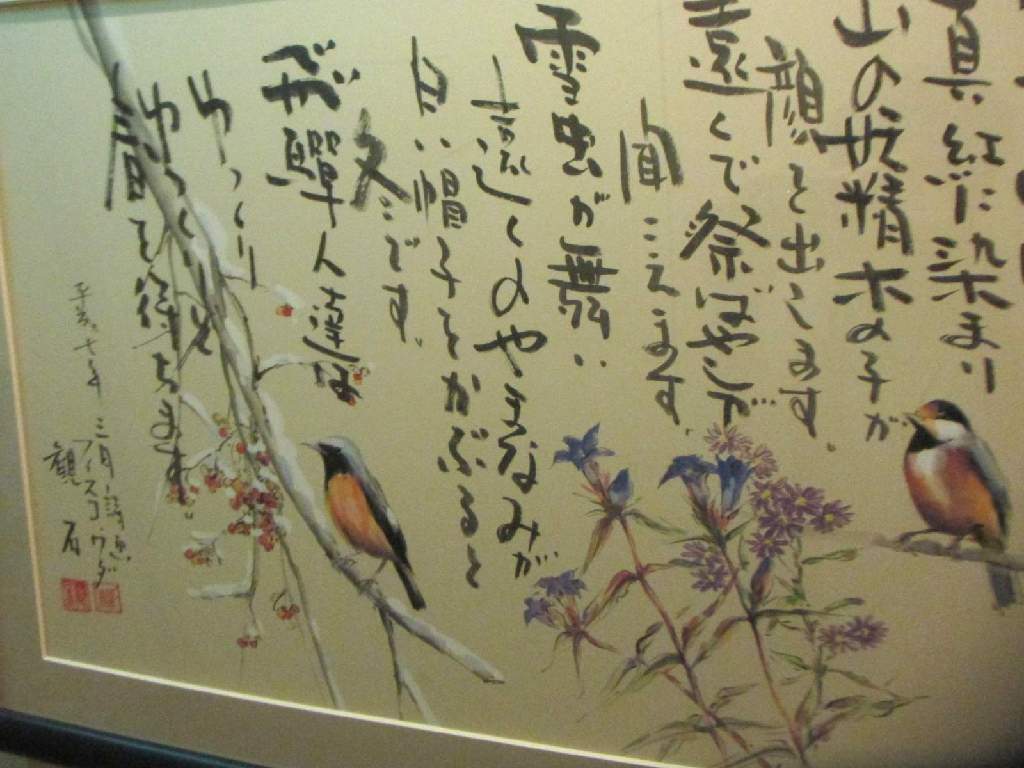 真紅に染まり
山の
精
木の子が
顔を出します。
遠くで祭ばやしが
聞こえます。
雪虫が舞い
遠くのやまなみが
白い帽子をかぶると
冬です。
飛驒人達は
ゆっくり
ゆっくり
春を待ちます
三月
観石